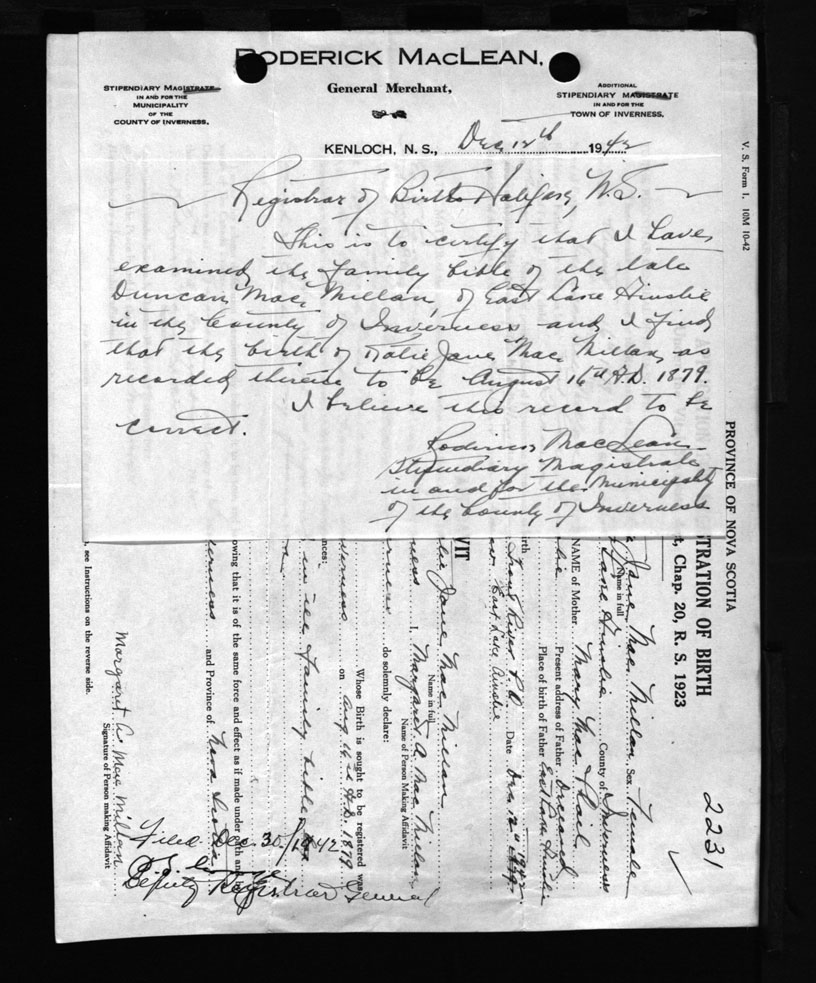 RODERICK MACLEAN,
General Merchant,
STIPENDIARY MAGISTRATE
IN AND FOR THE
MUNICIPALITY
OF THE
COUNTY OF INVERNESS.
ADDITIONAL
STIPENDIARY MAGISTRATE
IN AND FOR THE
TOWN OF INVERNESS.
KENLOCH, N. S., Dec 12th 1942
Registrar of Births Halifax, N.S.
This is to certify that I have
examined the family bible of the late
Duncan MacMillan, of East Lake Ainslie
in the County of Inverness and I find
that the birth of Katie Jane MacMillan, as
recorded therein to be August 16th A.D. 1879.
I believe this record to be
correct.
Roderick MacLean
Stipendiary Magistrate
in and for the Municipality
of the County of Inverness
V. S. Form 1. 10M 10-42
PROVINCE OF NOVA SCOTIA
TRATION OF BIRTH
t, Chap. 20, R. S. 1923
2231
Jane MacMillan Sex Female
Name in full
Lake Ainslie County of Inverness
NAME of Mother Mary Mac
Present address of Father Deceased
Place of birth of Father East Lake Ainslie
irth Trout River P.O. Date Dec. 12th 1942
East Lake Ainslie
VIT
tie Jane MacMillan
Name in full
ness I, Margaret A. MacMillan
Name of Person Making Affidavit
erness do solemnly declare:
Whose Birth is sought to be registered was
verness on Aug 16th A.D. 1879
nces:
in see family bible
owing that it is of the same force and effect as if made under oath and
erness and Province of Nova Scotia
Margaret A. MacMillan
Signature of Person making Affidavit
, see Instructions on the reverse side.
Filed Dec. 30/1942
Deputy Registrar General